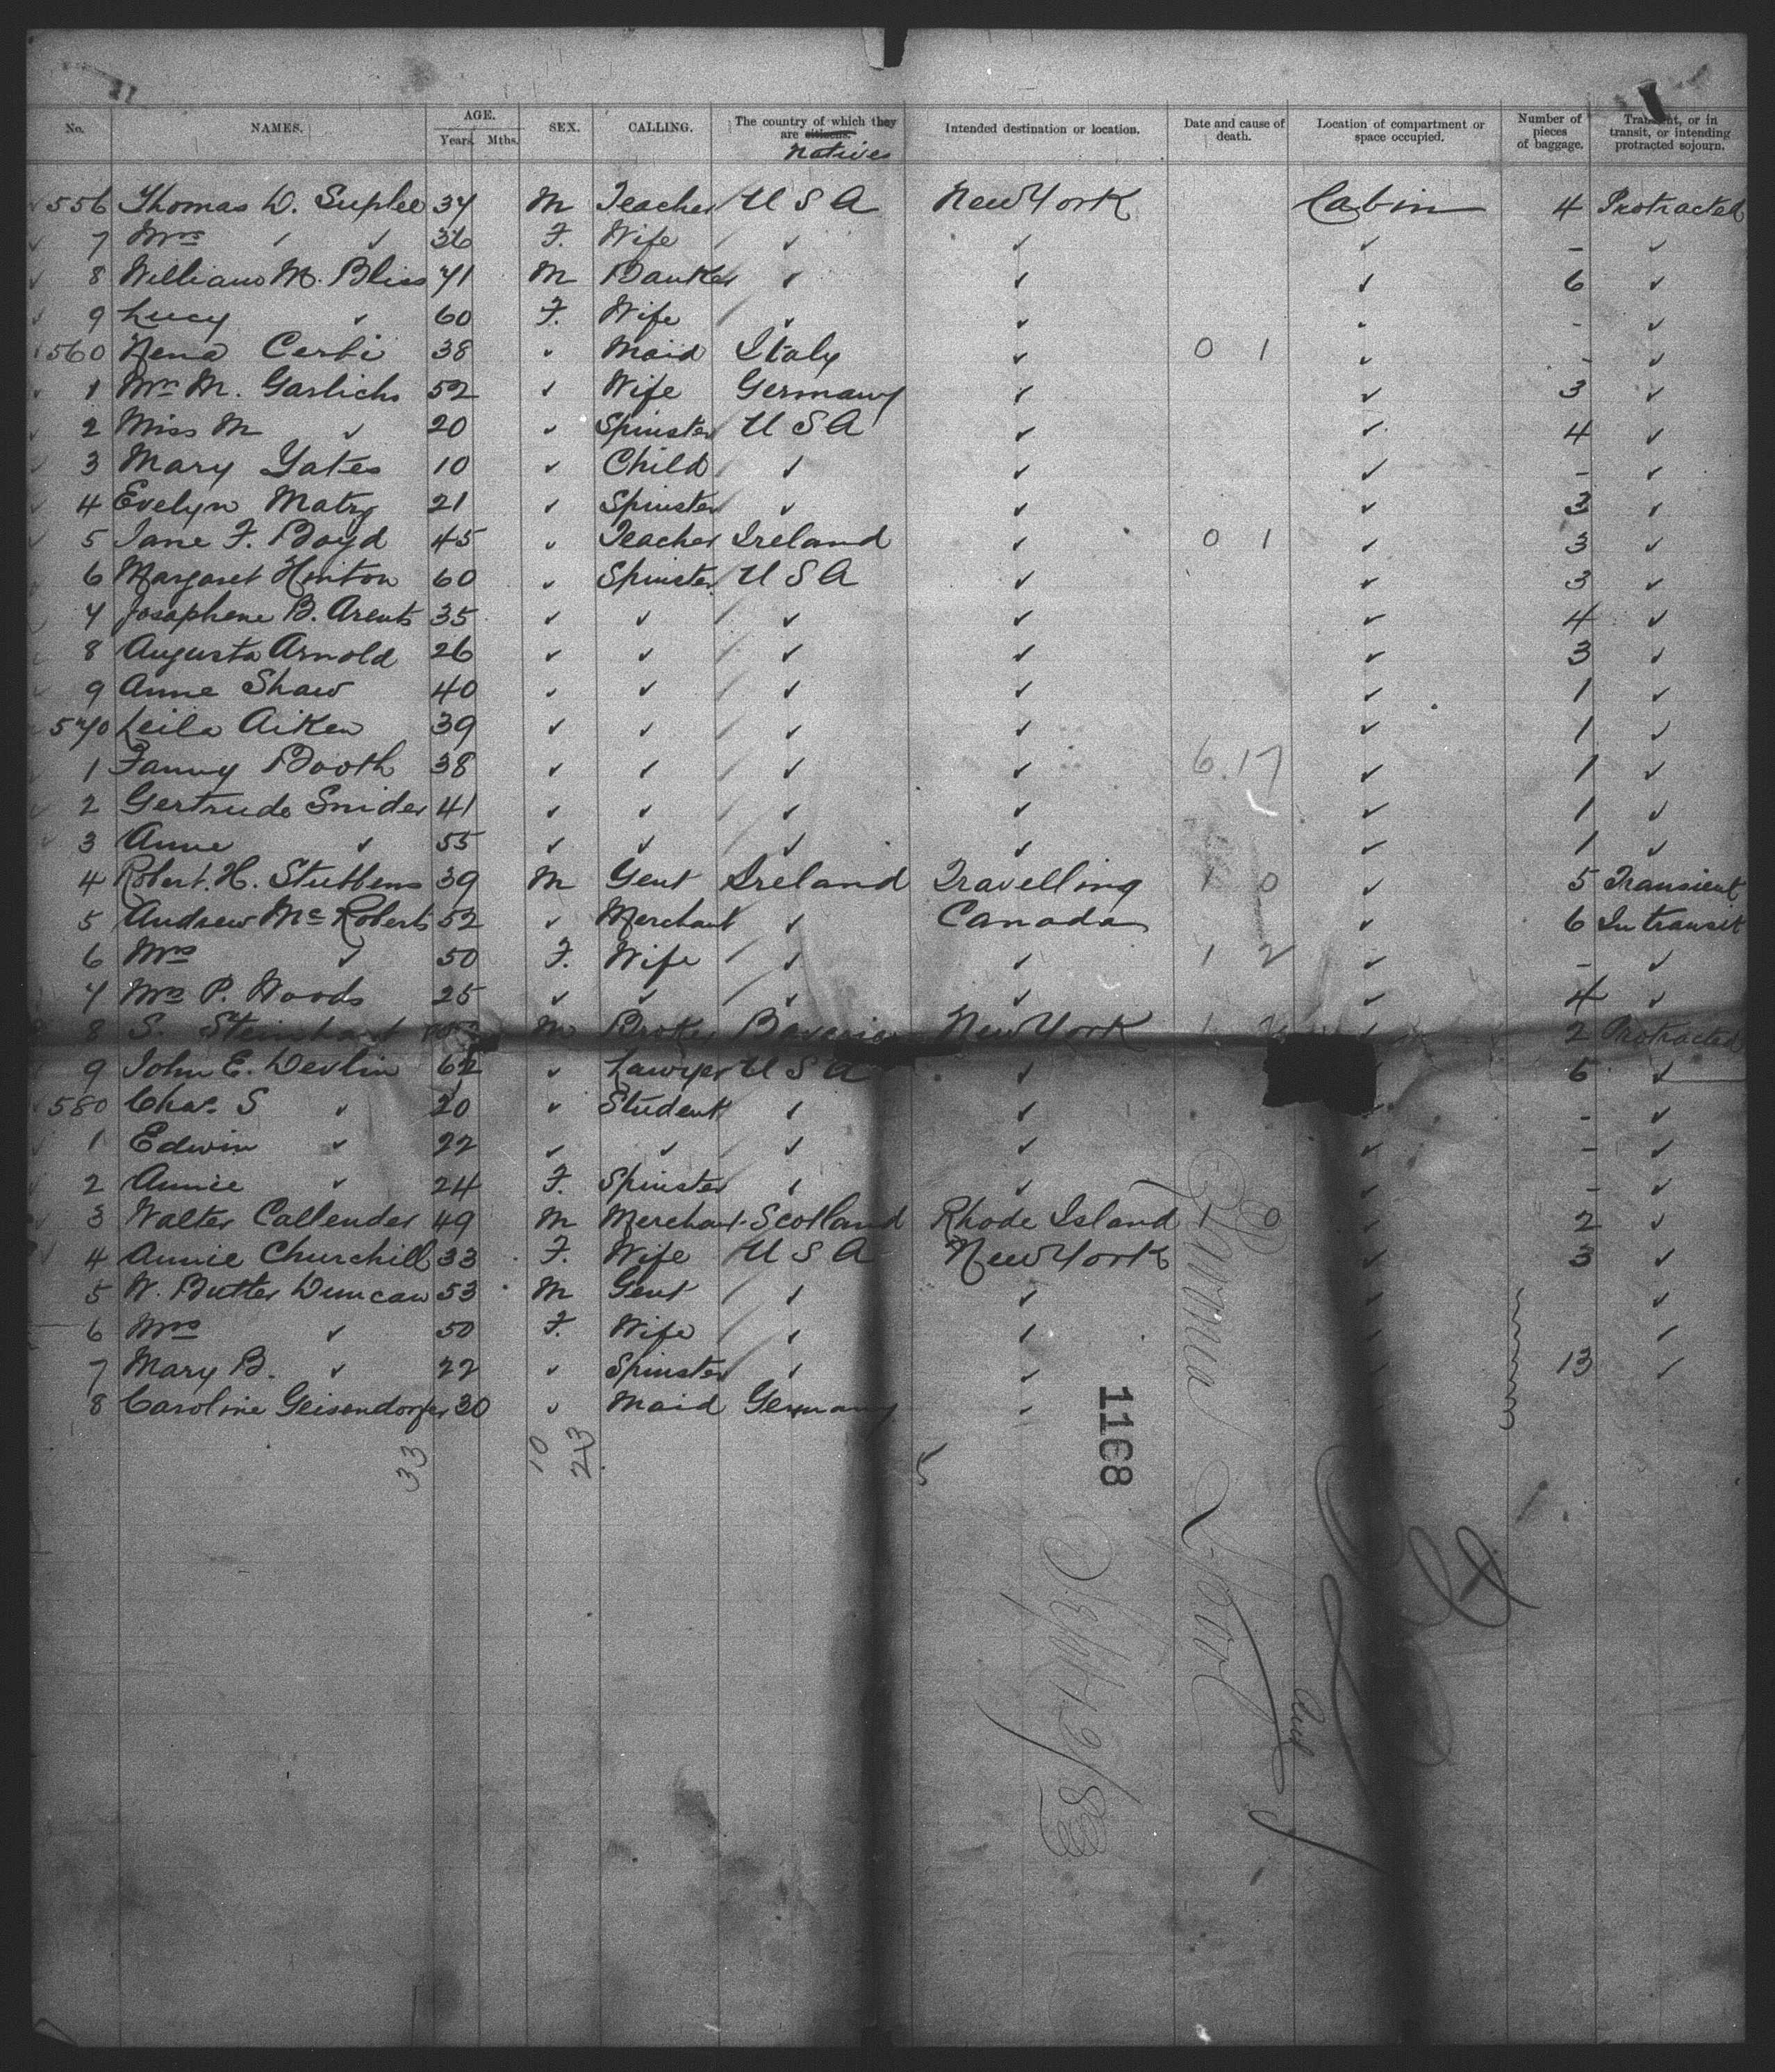 No. NAMES. AGE. Years. Mths. SEX. CALLING. The country of which they are citizens. natives Intended destination or location. Date and cause of death. Location of compartment or space occupied. Number of pieces of baggage. Transient, or in transit, or intending protracted sojourn.
556 Thomas D. Suplee 37 M Teacher U S A New York Cabin 4 Protracted
7 Mrs ✓ ✓ 36 F. Wife ✓ ✓ ✓ - ✓
8 William M. Bliss 71 M Banker ✓ ✓ ✓ 6 ✓
9 Lucy ✓ 60 F. Wife ✓ ✓ ✓ - ✓
560 Nena Cerbi 38 ✓ Maid Italy ✓ 0 1 ✓ - ✓
1 Mrs M. Garlichs 52 ✓ Wife Germany ✓ ✓ 3 ✓
2 Miss M ✓ 20 ✓ Spinster U S A ✓ ✓ 4 ✓
3 Mary Yates 10 ✓ Child ✓ ✓ ✓ - ✓
4 Evelyn 21 ✓ Spinster ✓ ✓ ✓ 3 ✓
5 Jane F. Boyd 45 ✓ Teacher Ireland ✓ 0 1 ✓ 3 ✓
6 Margaret Hinton 60 ✓ Spinster U S A ✓ ✓ 3 ✓
7 Josephene B. Arents 35 ✓ ✓ ✓ ✓ ✓ 4 ✓
8 Augusta Arnold 26 ✓ ✓ ✓ ✓ ✓ 3 ✓
9 Anne Shaw 40 ✓ ✓ ✓ ✓ ✓ 1 ✓
570 Leila Aiken 39 ✓ ✓ ✓ ✓ ✓ 1 ✓
1 Fanny Booth 38 ✓ ✓ ✓ ✓ 6.17 ✓ 1 ✓
2 Gertrude Snider 41 ✓ ✓ ✓ ✓ ✓ 1 ✓
3 Anne ✓ 55 ✓ ✓ ✓ ✓ ✓ 1 ✓
4 Robert. H. Stubbens 39 M Gent Ireland Travelling 1 0 ✓ 5 Transient
5 Andrew Mc Roberts 52 ✓ Merchant ✓ Canada ✓ 6 In transit
6 Mrs ✓ 50 F. Wife ✓ ✓ 1 2 ✓ - ✓
7 Mrs P. Woods 25 ✓ ✓ ✓ ✓ ✓ 4 ✓
8 S. Steinhart M Broker Bavaria New York 2 Protracted
9 John E. Devlin 62 ✓ Lawyer U S A ✓ ✓ 6 ✓
580 Chas. S ✓ 20 ✓ Student ✓ ✓ ✓ - ✓
1 Edwin ✓ 22 ✓ ✓ ✓ ✓ ✓ - ✓
2 Annie ✓ 24 F. Spinster ✓ ✓ ✓ - ✓
3 Walter Callender 49 M Merchant Scotland Rhode Island 1 0 ✓ 2 ✓
4 Annie Churchill 33 F. Wife U S A New York ✓ 3 ✓
5 W. Butler Duncan 53 M Gent ✓ ✓ ✓ ✓
6 Mrs ✓ 50 F. Wife ✓ ✓ ✓ ✓
7 Mary B. ✓ 22 ✓ Spinster ✓ ✓ 13 ✓
8 Caroline Geisendorfer 30 ✓ Maid Germany ✓
33 10 23
1168